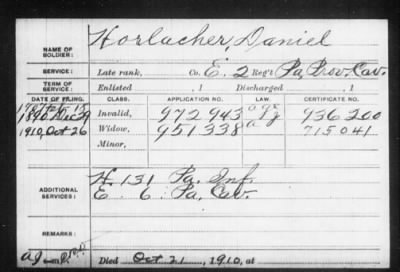 Horlacher, Daniel
NAME OF SOLDIER:
SERVICE: Late rank, Co. E. 2 Reg't Pa. Prov. Cav.
TERM OF SERVICE: Enlisted , 1 Discharged , 1
DATE OF FILING. CLASS. APPLICATION NO. LAW. CERTIFICATE NO.
1890 Dec 29 Invalid, 972 943 936 200
1910, Oct 26 Widow, 951 338 715 041
Minor,
ADDITIONAL SERVICES:
H. 131 Pa. Inf.
E. 6. Pa. Cav.
REMARKS:
Died Oct 21, 1910, at